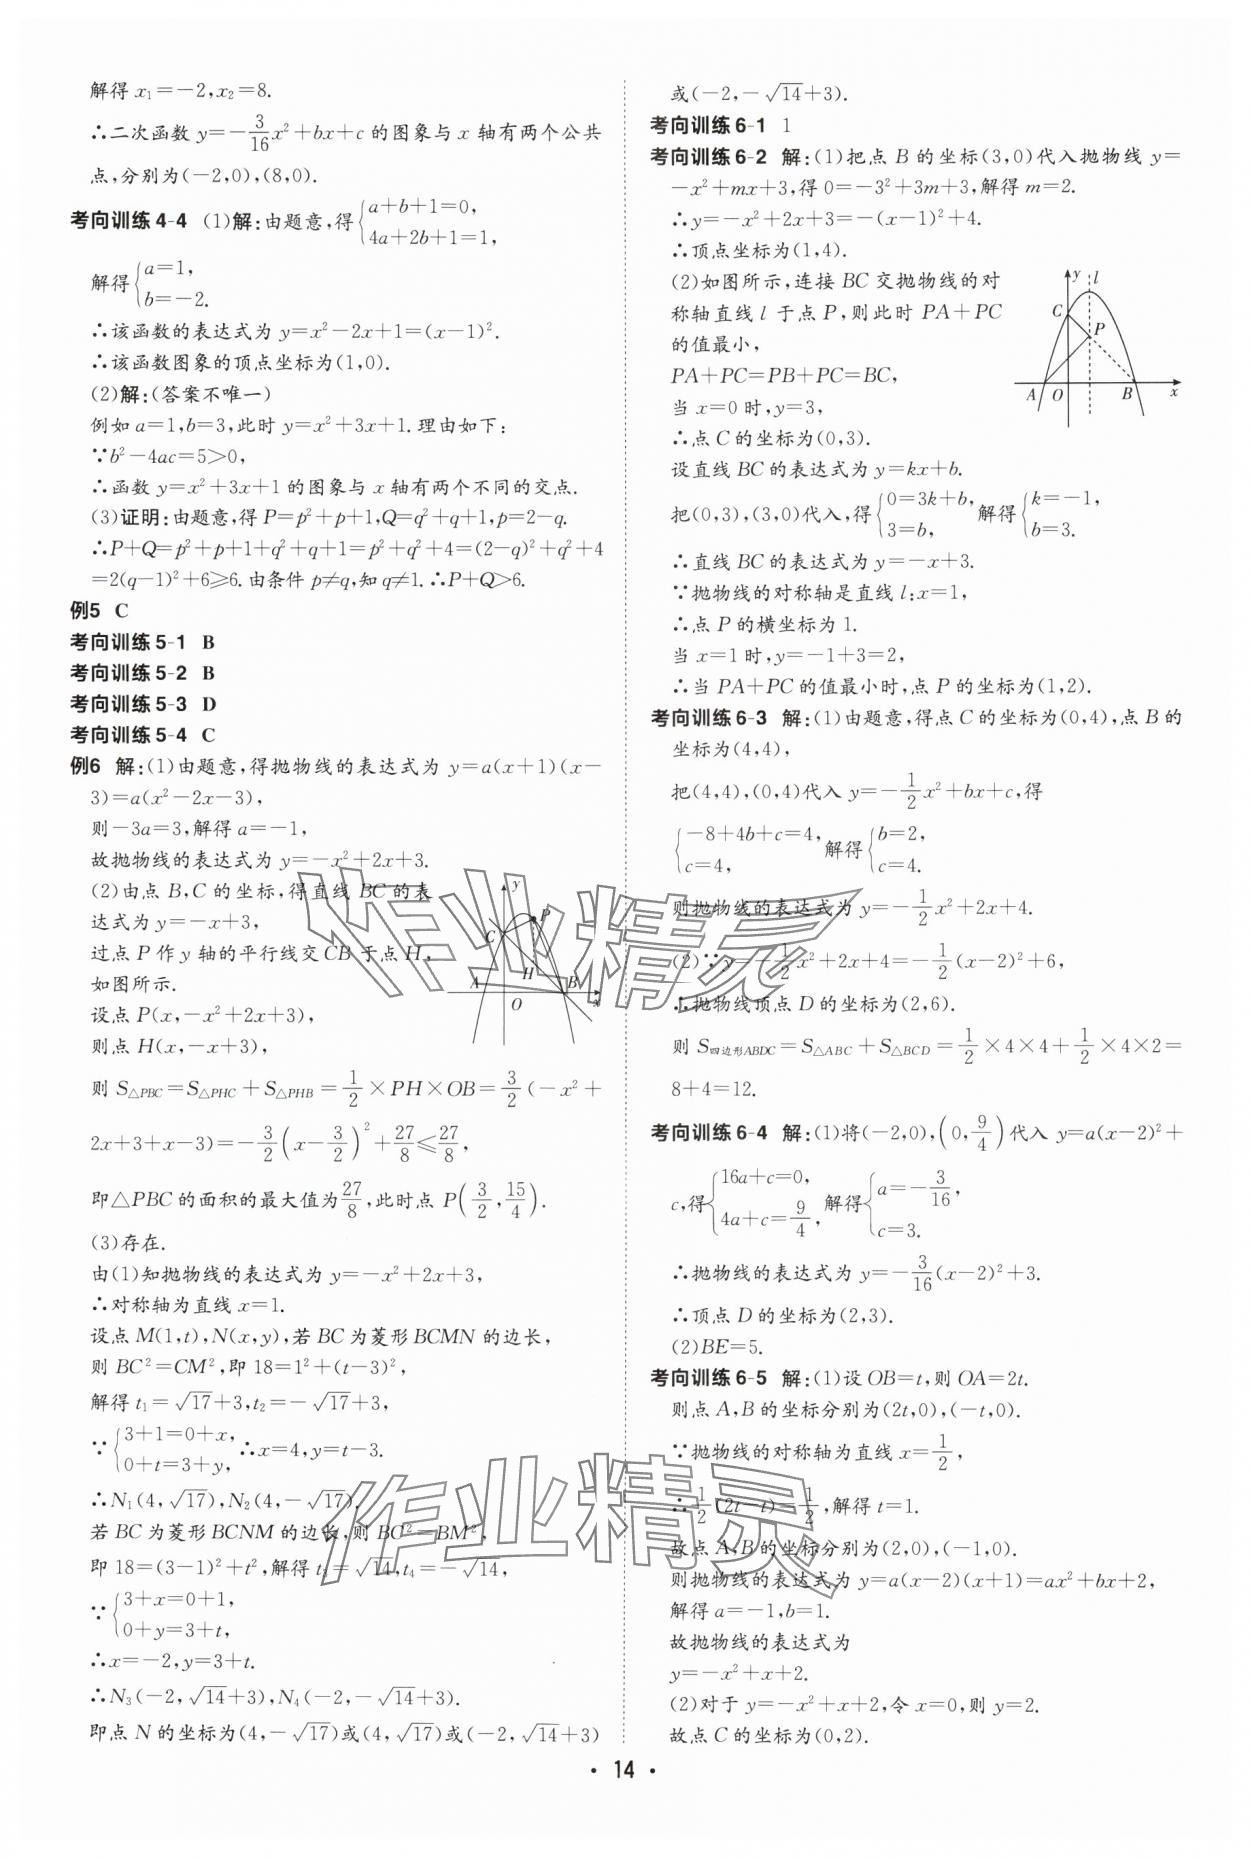 解得 x₁=-2,x₂=8.
∴二次函数 y=-3/16x²+bx+c 的图象与 x 轴有两个公共
点,分别为(-2,0),(8,0).
考向训练4-4 (1)解:由题意,得{a+b+1=0,
4a+2b+1=1,
解得{a=1,
b=-2.
∴该函数的表达式为 y=x²-2x+1=(x-1)².
∴该函数图象的顶点坐标为(1,0).
(2)解:(答案不唯一)
例如 a=1,b=3,此时 y=x²+3x+1.理由如下:
∵b²-4ac=5>0,
∴函数 y=x²+3x+1 的图象与 x 轴有两个不同的交点.
(3)证明:由题意,得 P=p²+p+1,Q=q²+q+1,p=2-q.
∴P+Q=p²+p+1+q²+q+1=p²+q²+4=(2-q)²+q²+4
=2(q-1)²+6⩾6.由条件 p≠q,知 q≠1.∴P+Q>6.
例5 C
考向训练5-1 B
考向训练5-2 B
考向训练5-3 D
考向训练5-4 C
例6 解:(1)由题意,得抛物线的表达式为 y=a(x+1)(x-
3)=a(x²-2x-3),
则-3a=3,解得 a=-1,
故抛物线的表达式为 y=-x²+2x+3.
(2)由点 B,C 的坐标,得直线 BC 的表
达式为 y=-x+3,
过点 P 作 y 轴的平行线交 CB 于点 H,
如图所示.
设点 P(x,-x²+2x+3),
则点 H(x,-x+3),
y
P
C
H
A
B
O
x
则 S△PBC=S△PHC+S△PHB=1/2×PH×OB=3/2(-x²+
2x+3+x-3)=-3/2(x-3/2)²+27/8⩽27/8,
即△PBC 的面积的最大值为27/8,此时点 P(3/2,15/4).
(3)存在.
由(1)知抛物线的表达式为 y=-x²+2x+3,
∴对称轴为直线 x=1.
设点 M(1,t),N(x,y),若 BC 为菱形 BCMN 的边长,
则 BC²=CM²,即 18=1²+(t-3)²,
解得 t₁=√17+3,t₂=-√17+3,
∵{3+1=0+x,
0+t=3+y, ∴x=4,y=t-3.
∴N₁(4,√17),N₂(4,-√17).
若 BC 为菱形 BCNM 的边长,则 BC²=BM²,
即 18=(3-1)²+t²,解得 t₃=√14,t₄=-√14,
∵{3+x=0+1,
0+y=3+t,
∴x=-2,y=3+t.
∴N₃(-2,√14+3),N₄(-2,-√14+3).
即点 N 的坐标为(4,-√17)或(4,√17)或(-2,√14+3)
或(-2,-√14+3).
考向训练6-1 1
考向训练6-2 解:(1)把点 B 的坐标(3,0)代入抛物线 y=
-x²+mx+3,得 0=-3²+3m+3,解得 m=2.
∴y=-x²+2x+3=-(x-1)²+4.
∴顶点坐标为(1,4).
(2)如图所示,连接 BC 交抛物线的对
称轴直线 l 于点 P,则此时 PA+PC
的值最小,
PA+PC=PB+PC=BC,
当 x=0 时,y=3,
∴点 C 的坐标为(0,3).
y
l
C
P
A
O
B
x
设直线 BC 的表达式为 y=kx+b.
把(0,3),(3,0)代入,得{0=3k+b,
3=b, 解得{k=-1,
b=3.
∴直线 BC 的表达式为 y=-x+3.
∵抛物线的对称轴是直线 l:x=1,
∴点 P 的横坐标为 1.
当 x=1 时,y=-1+3=2,
∴当 PA+PC 的值最小时,点 P 的坐标为(1,2).
考向训练6-3 解:(1)由题意,得点 C 的坐标为(0,4),点 B 的
坐标为(4,4),
把(4,4),(0,4)代入 y=-1/2x²+bx+c,得
{-8+4b+c=4,
c=4, 解得{b=2,
c=4.
则抛物线的表达式为 y=-1/2x²+2x+4.
(2)∵y=-1/2x²+2x+4=-1/2(x-2)²+6,
∴抛物线顶点 D 的坐标为(2,6).
则 S四边形ABDC=S△ABC+S△BCD=1/2×4×4+1/2×4×2=
8+4=12.
考向训练6-4 解:(1)将(-2,0),(0,9/4)代入 y=a(x-2)²+
c,得{16a+c=0,
4a+c=9/4, 解得{a=-3/16,
c=3.
∴抛物线的表达式为 y=-3/16(x-2)²+3.
∴顶点 D 的坐标为(2,3).
(2)BE=5.
考向训练6-5 解:(1)设 OB=t,则 OA=2t.
则点 A,B 的坐标分别为(2t,0),(-t,0).
∵抛物线的对称轴为直线 x=1/2,
∴1/2(2t-t)=1/2,解得 t=1.
故点 A,B 的坐标分别为(2,0),(-1,0).
则抛物线的表达式为 y=a(x-2)(x+1)=ax²+bx+2,
解得 a=-1,b=1.
故抛物线的表达式为
y=-x²+x+2.
(2)对于 y=-x²+x+2,令 x=0,则 y=2.
故点 C 的坐标为(0,2).
作业精灵
作业精灵
• 14 •